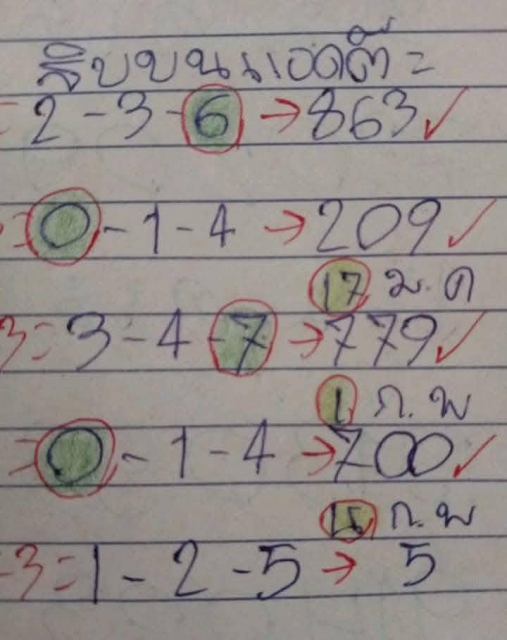 สิบบนแอดติ=
= 2-3-6 → 863 ✓
= 0-1-4 → 209 ✓
17 ม.ค
3= 3-4-7 → 779 ✓
1 ก.พ
= 0-1-4 → 700 ✓
ก.พ
-3= 1-2-5 → 5